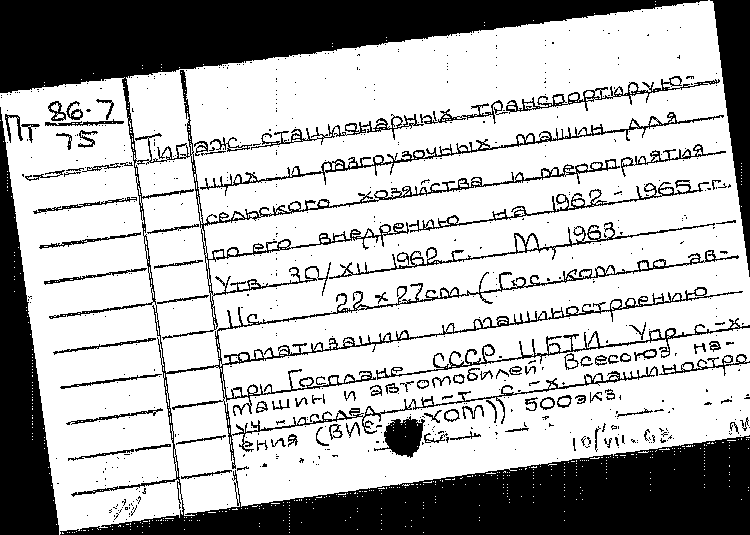 Пт 86-7
75
Типаж стационарных транспортирую-
щих и разгрузочных машин для
сельского хозяйства и мероприятия
по его внедрению на 1962-1965 гг.
Утв. 30/XII 1962 г. М., 1963.
11с. 22 x 27см. (Гос. ком. по ав-
томатизации и машиностроению
при Госплане СССР. ЦБТИ. Упр. с.-х.
машин и автомобилей. Всесоюз. на-
уч.-исслед. ин-т с.-х. машиностро
ения (ВИС ХОМ)). 500экз.
10/VII-63